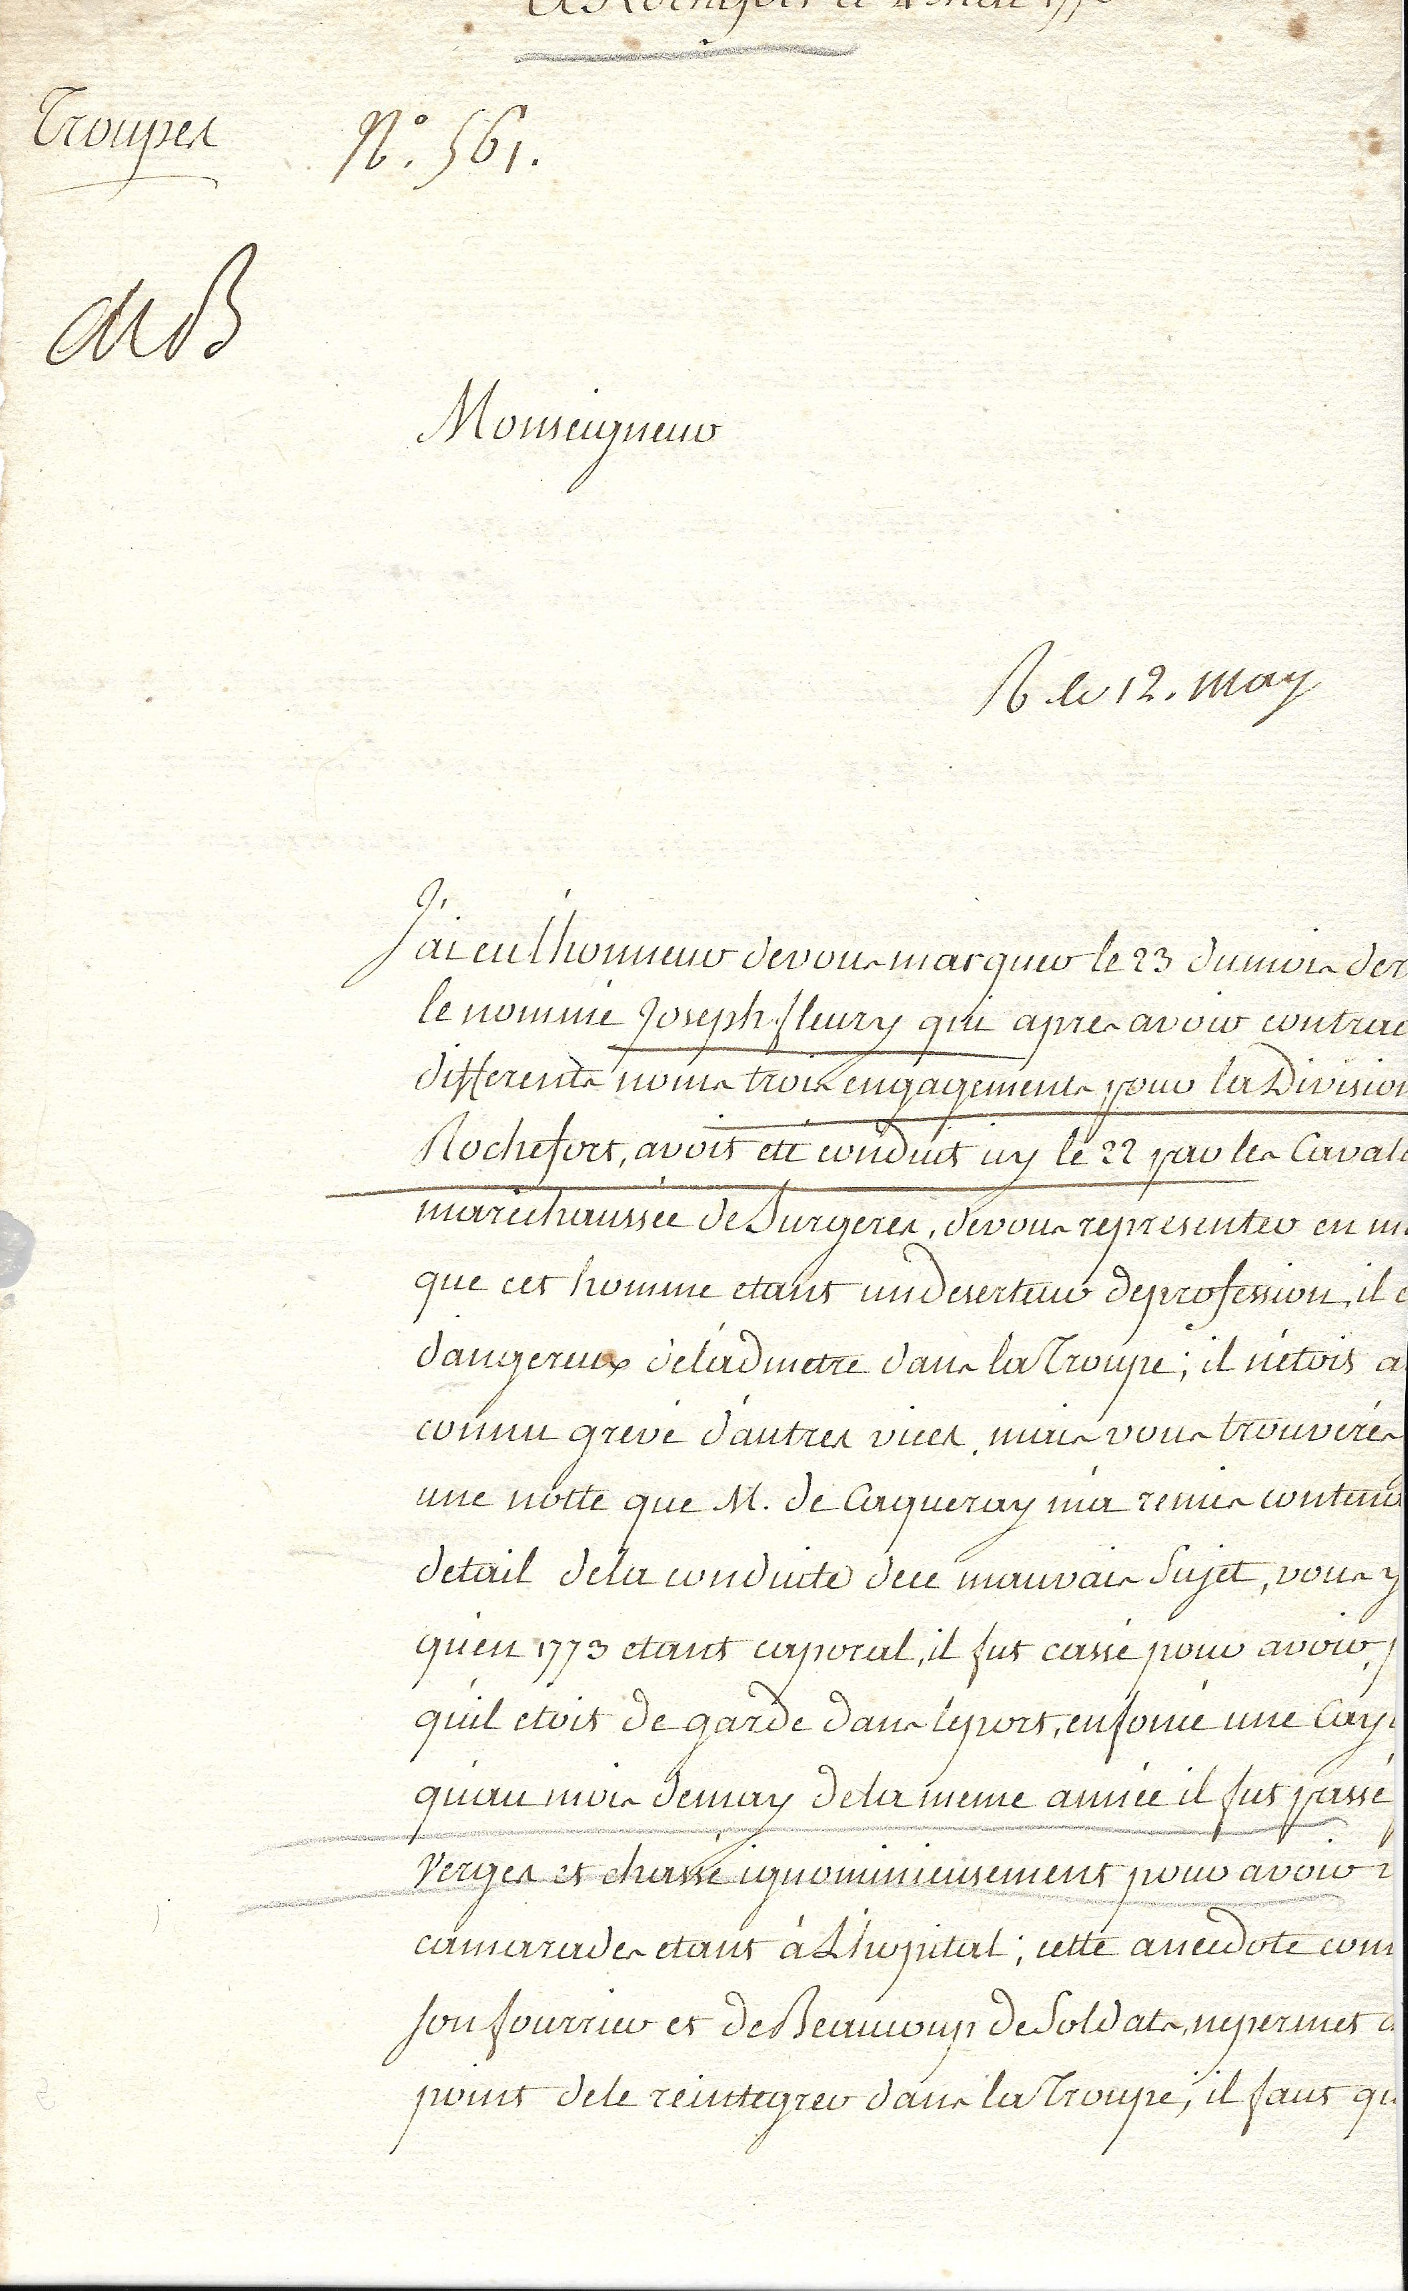 A Rochefort le 4 Mai 177
Troupes
N.° 561.
de B
Monseigneur
R le 12. may
J'ai eu l'honneur de vous marquer le 23 du mois der
le nommé Joseph fleury qui apres avoir contrac
differents noms trois engagements pour la Division
Rochefort, avoit eté conduit icy le 22 par les Caval
maréchaussée de Surgeres, de vous representer en m
que cet homme etant un deserteur de profession, il e
dangereux de l'admetre dans la Troupe; il n'étoit a
connu grevé d'autres vices, mais vous trouverés
une notte que M. de Caqueray m'a remis contena
detail de la conduite de ce mauvais Sujet, vous y
qu'en 1773 etant caporal, il fut cassé pour avoir, p
qu'il étoit de garde dans le port, enfoncé une Cay
qu'au mois de may de la meme année il fut passé
verges et chassé ignominieusement pour avoir v
camarades etant à L'hopital; cette anecdote conn
son fourrier et de Beaucoup de Soldats, ne permet d
point de le reintegrer dans la Troupe; il faut qu